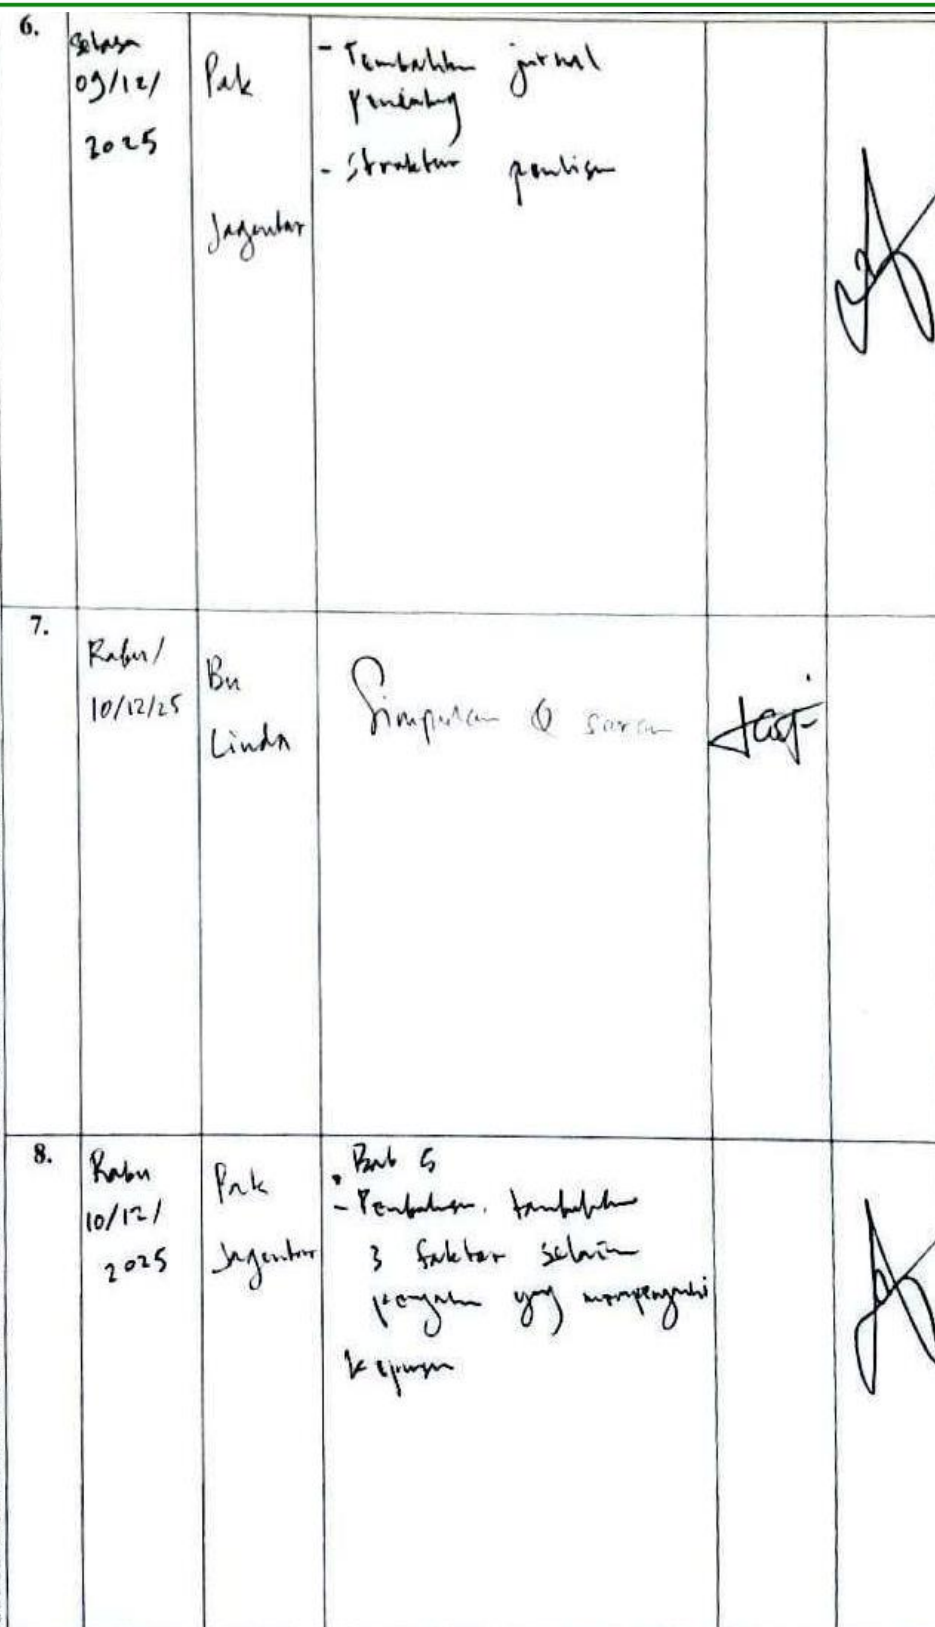 6.
Selasa
09/12/
2025
Pak
Jagentar
- Tambahkan jurnal
Pendukung
- Struktur penulisan
7.
Rabu/
10/12/25
Bu
Linda
Simpulan & saran
8.
Rabu
10/12/
2025
Pak
Jagentar
Bab 5
- Pembahasan. tambahkan
3 faktor selain
yang mempengaruhi